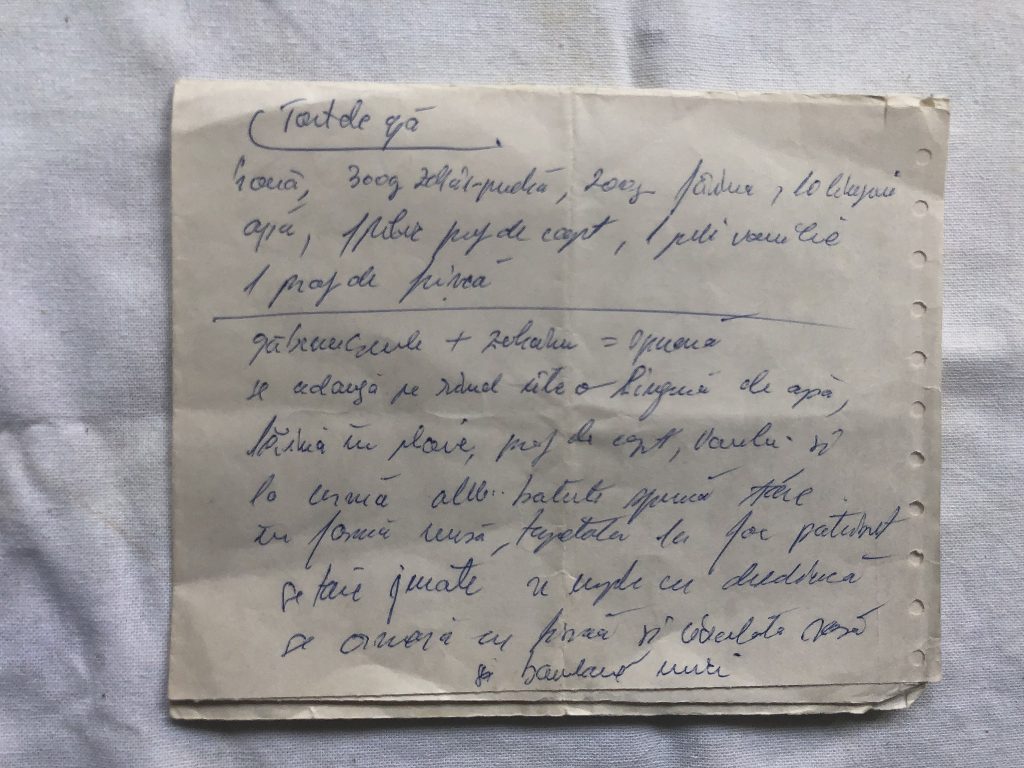 Tort de apă
300g zahăr-pudră, 200g făină, 10 linguri
apă, 1 plic praf de copt, 1 plic vanilie
1 praf de
gălbenușurile + zahărul = spumă
se adaugă pe rând câte o lingură de apă,
făină în ploaie, praf de copt, vanilie și
la urmă albu.. batute spumă tare
în formă unsă, la foc potrivit
se taie jumate se umple cu
se ornează cu și ciocolata rasă
și mici